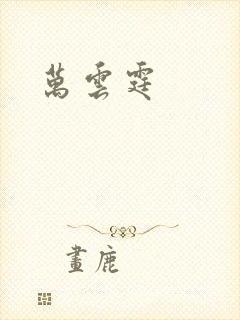 萬雲霆
畫鹿